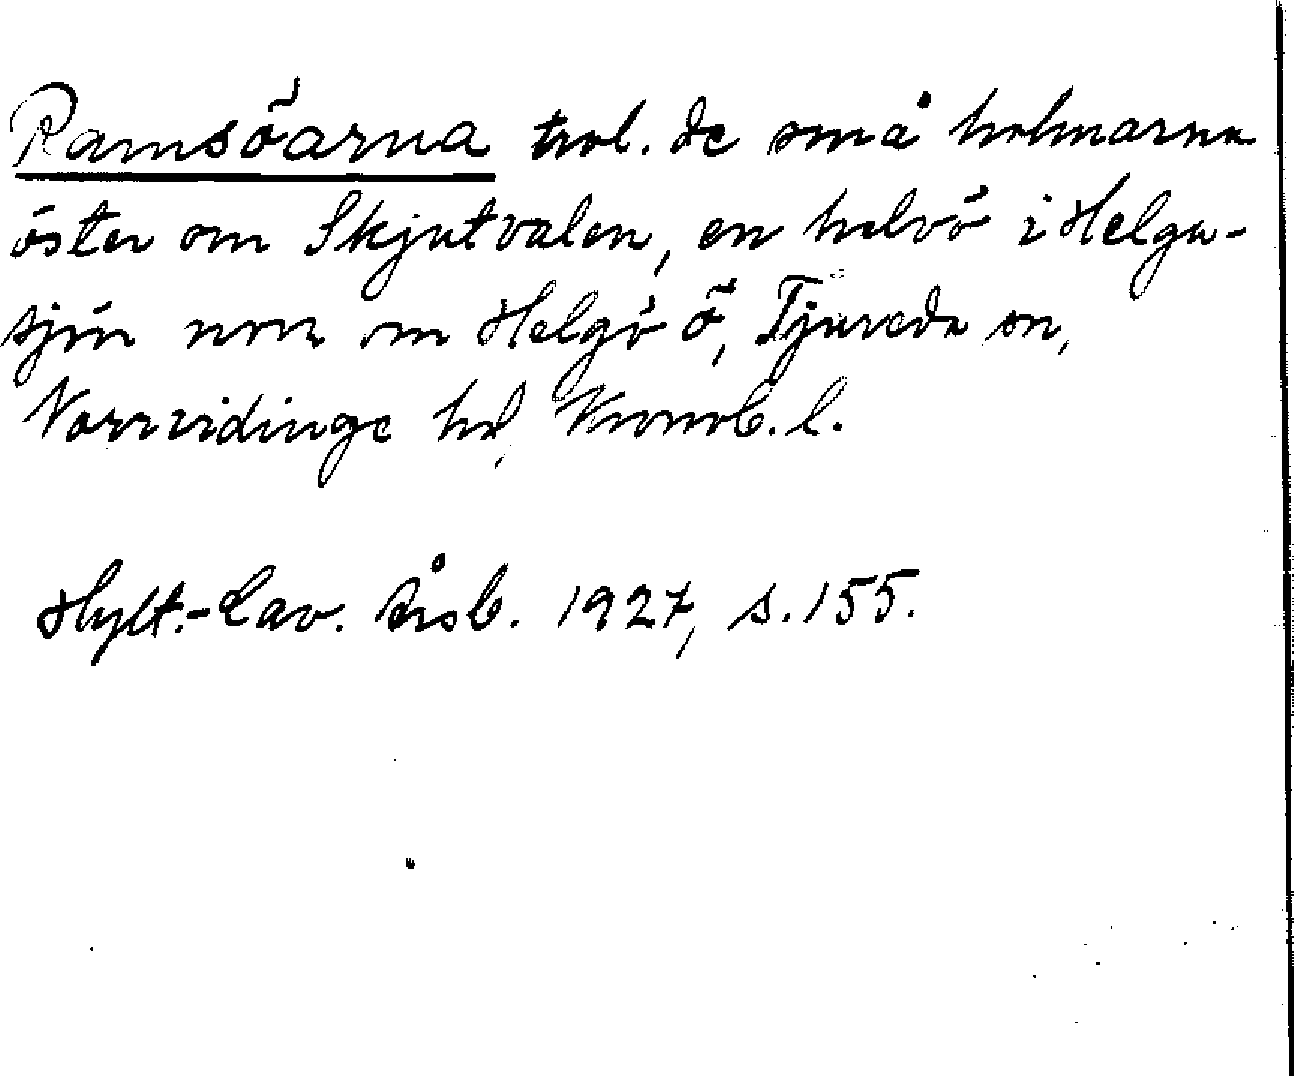 Ramsöarna trol. de små holmarna
öster om Skjutvalen, en halvö i Helga-
sjön norr om Helgö ö, Tjureda sn,
Norrvidinge hd, Kronob. l.
Hylt.-Cav. årsb. 1927, s. 155.